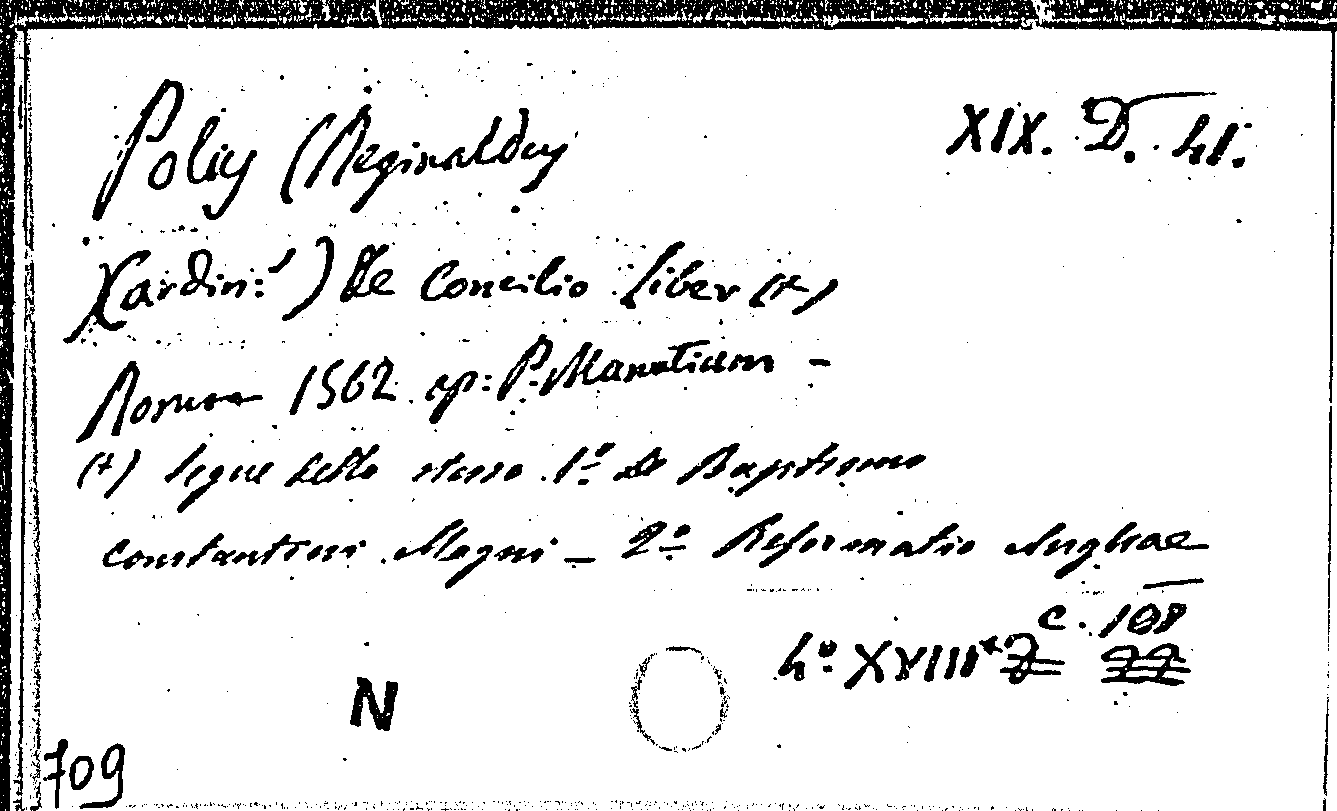 Polus (Reginaldus XIX. D. 41.
Cardin:) De Concilio Liber (+)
Romae 1562 ap: P. Manutium -
(+) Segue dello stesso 1º De Baptismo
Constantini Magni - 2º Reformatio Angliae
C. 108
4º XVIII
N
709